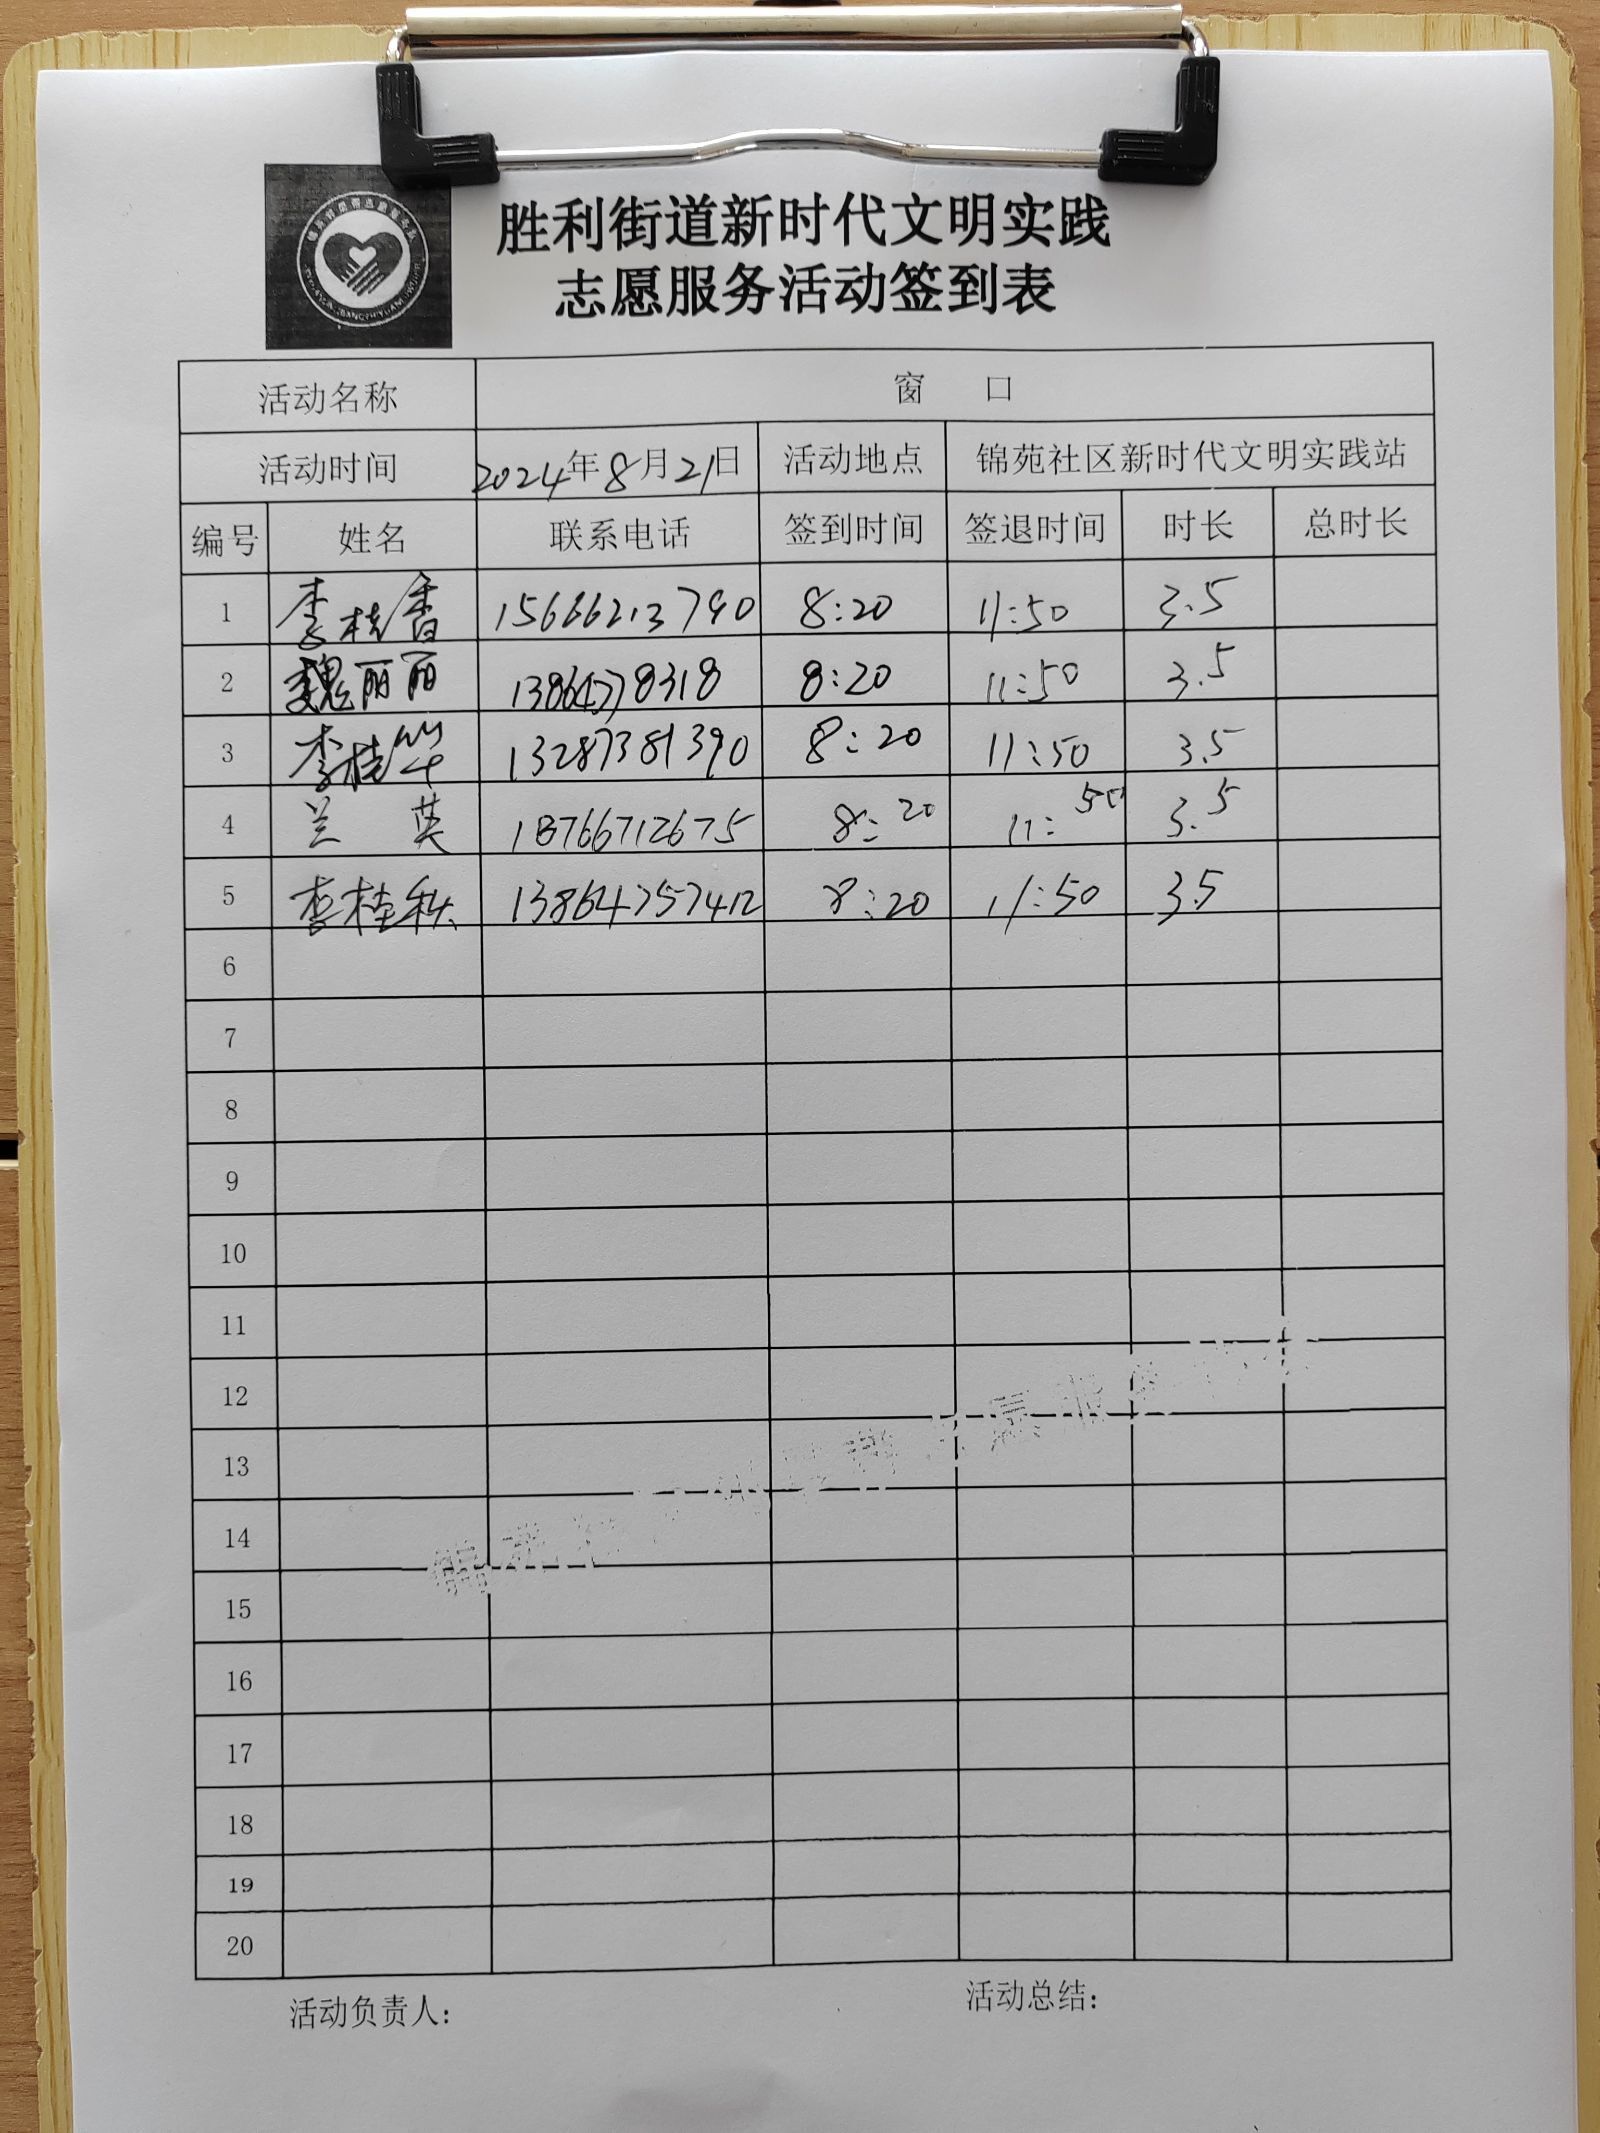 胜利街道新时代文明实践
志愿服务活动签到表
活动名称 窗 口
活动时间 2024年8月21日 活动地点 锦苑社区新时代文明实践站
编号 姓名 联系电话 签到时间 签退时间 时长 总时长
1 李桂香 15666213790 8:20 11:50 3.5
2 魏丽丽 8:20 11:50 3.5
3 李桂华 13287381390 8:20 11:50 3.5
4 兰 英 18766712675 8:20 11:50 3.5
5 李桂秋 13864757412 8:20 11:50 3.5
6
7
8
9
10
11
12
13
14
15
16
17
18
19
20
活动负责人:
活动总结: